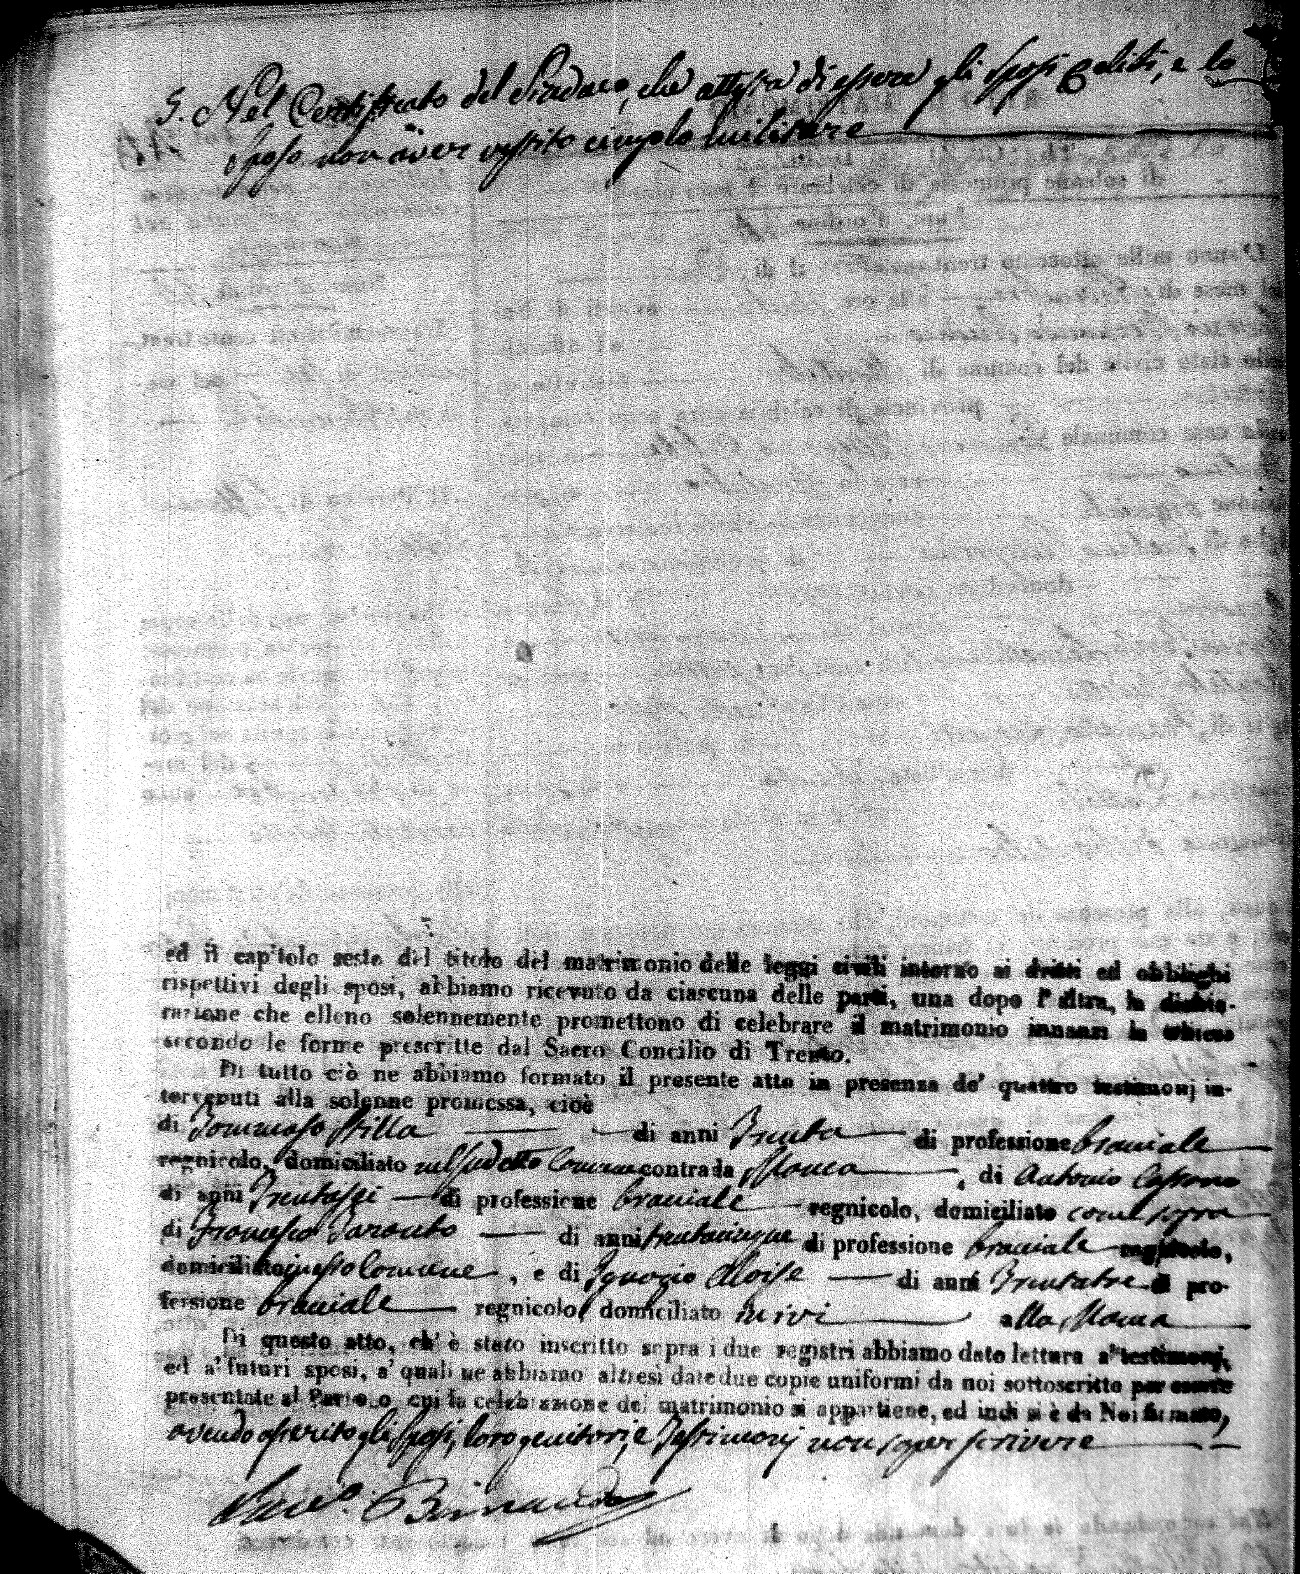 5. Nel Certificato del Sindaco, che attesta di essere gli sposi celibi, e lo
sposo non aver vestito cingolo militare
ed il capitolo sesto del titolo del matrimonio delle leggi civili intorno ai dritti ed obblighi
rispettivi degli sposi, abbiamo ricevuto da ciascuna delle parti, una dopo l'altra, la dichia-
razione che elleno solennemente promettono di celebrare il matrimonio innanzi la chiesa
secondo le forme prescritte dal Sacro Concilio di Trento.
Di tutto ciò ne abbiamo formato il presente atto in presenza de' quattro testimonj in-
tervenuti alla solenne promessa, cioè
di Tommaso Stilla di anni Trenta di professione bracciale
regnicolo, domiciliato nel sudetto Comune contrada , di Antonio
di anni Trentasei di professione bracciale regnicolo, domiciliato come sopra
di Francesco Taranto di anni trentacinque di professione bracciale regnicolo,
domiciliato in esso Comune , e di Ignazio Aloise di anni Trentatre di pro-
fessione bracciale regnicolo domiciliato in ivi alla
Di questo atto, ch' è stato inscritto sopra i due registri abbiamo dato lettura a' testimonj,
ed a' futuri sposi, a' quali ne abbiamo altresì date due copie uniformi da noi sottoscritte per essere
presentate al Parroco, cui la celebrazione del matrimonio si appartiene, ed indi si è da Noi firmato,
avendo asserito gli sposi, loro genitori, e Testimonj non saper scrivere